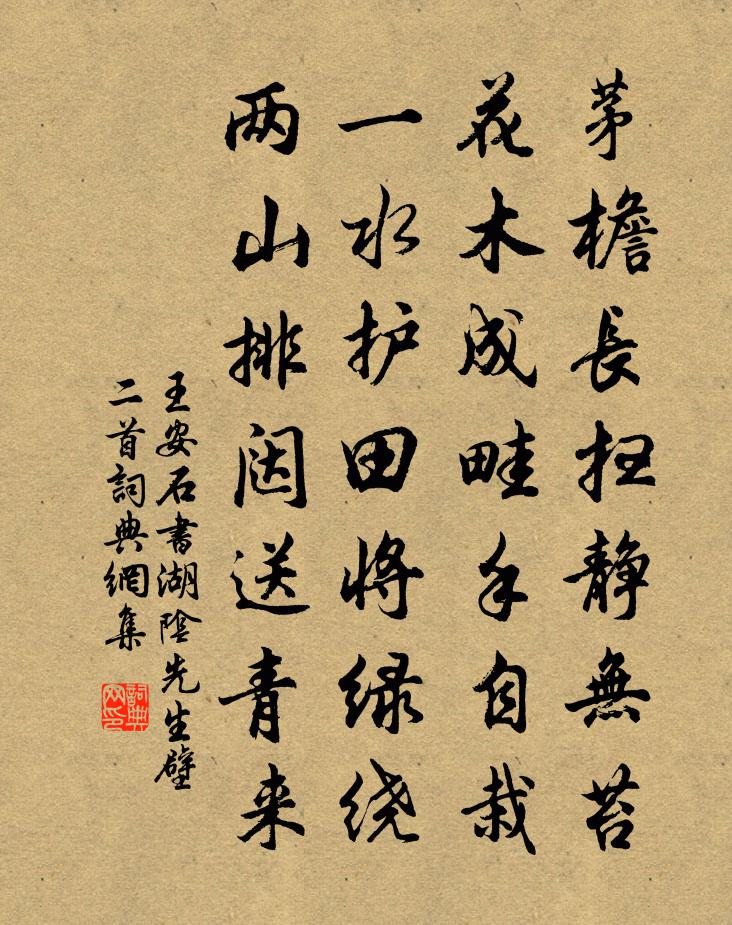 茅檐長扫静無苔
花木成畦手自栽
一水护田将绿绕
两山排闼送青来
王安石書湖陰先生壁
二首詞典網集
詞典
网印